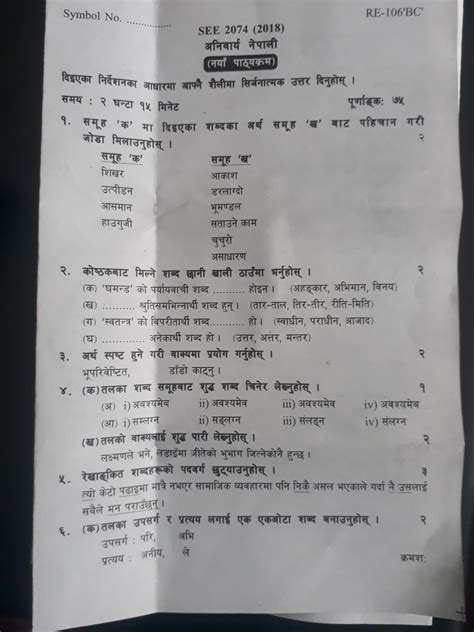 Symbol No. ..................
RE-106'BC'
SEE 2074 (2018)
अनिवार्य नेपाली
(नयाँ पाठ्यक्रम)
दिइएका निर्देशनका आधारमा आफ्नै शैलीमा सिर्जनात्मक उत्तर दिनुहोस् ।
समय : २ घन्टा १५ मिनेट पूर्णाङ्क: ७५
१. समूह 'क' मा दिइएका शब्दका अर्थ समूह 'ख' बाट पहिचान गरी
जोडा मिलाउनुहोस् । २
समूह 'क' समूह 'ख'
शिखर आकाश
उत्पीडन डरलाग्दो
आसमान भूमण्डल
हाउगुजी सताउने काम
चुचुरो
असाधारण
२. कोष्ठकबाट मिल्ने शब्द छानी खाली ठाउँमा भर्नुहोस् । २
(क) 'घमन्ड' को पर्यायवाची शब्द.......... होइन । (अहङ्कार, अभिमान, विनय)
(ख) .......... श्रुतिसमभिन्नार्थी शब्द हुन् । (तार-ताल, तिर-तीर, रीति-मिति)
(ग) 'स्वतन्त्र' को विपरीतार्थी शब्द.......... हो । (स्वाधीन, पराधीन, आजाद)
(घ) .......... अनेकार्थी शब्द हो । (उत्तर, अत्तर, मन्तर)
३. अर्थ स्पष्ट हुने गरी वाक्यमा प्रयोग गर्नुहोस् । २
भूपरिवेष्टित, डाँडो काट्नु ।
४. (क) तलका शब्द समूहबाट शुद्ध शब्द चिनेर लेख्नुहोस् । १
(अ) i) अवश्यमेव ii) अवश्यमेव iii) अवश्यमेव iv) अवश्यमेव
(आ) i) सम्लग्न ii) सङ्लग्न iii) संलङ्न iv) संलग्न
(ख) तलको वाक्यलाई शुद्ध पारी लेख्नुहोस् । २
लक्ष्मणले भने, लडाईमा जीतेको भुभाग जित्नेकोनै हुन्छ ।
५. रेखाङ्कित शब्दहरूको पदवर्ग छुट्याउनुहोस् । ३
त्यो केटो पढाइमा मात्रै नभएर सामाजिक व्यवहारमा पनि निकै असल भएकाले गर्दा नै उसलाई
सबैले मन पराउँछन् ।
६. (क) तलका उपसर्ग र प्रत्यय लगाई एक एकओटा शब्द बनाउनुहोस् । २
उपसर्ग : परि, अभि
प्रत्यय : अनीय, ले
क्रमश: